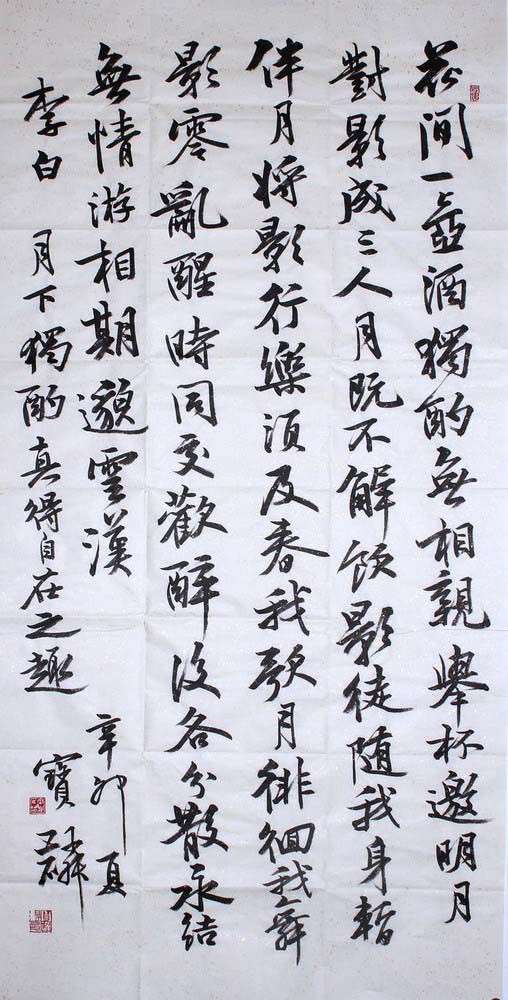 花間一壺酒獨酌無相親舉杯邀明月
對影成三人月既不解飲影徒随我身暫
伴月將影行樂須及春我歌月徘徊我舞
影零亂醒時同交歡醉後各分散永結
無情游相期邈雲漢
李白 月下獨酌真得自在之趣
辛卯夏
寶璘